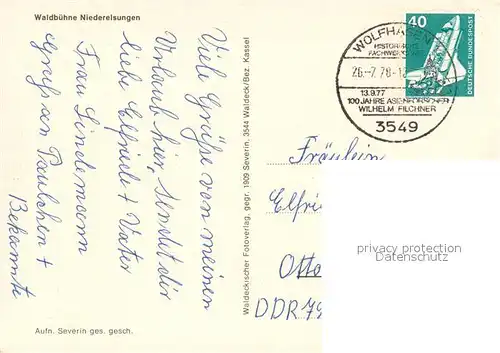 Waldbühne Niederelsungen
Viele Grüße von meinen
Urlaub hier, sendet dir
liebe Elfriede + Vater
Frau Lindemann
Gruß an Paulchen +
Bekannte
Aufn. Severin ges. gesch.
Waldeckischer Fotoverlag, gegr. 1909 Severin, 3544 Waldeck/Bez. Kassel
WOLFHAGEN
HISTORISCHE
FACHWERK
26.-7.78-1
13.9.77
100 JAHRE ASIENFORSCHER
WILHELM FILCHNER
3549
40
DEUTSCHE BUNDESPOST
Fräulein
Elfrie
Otto
DDR 79
privacy protection
Datenschutz